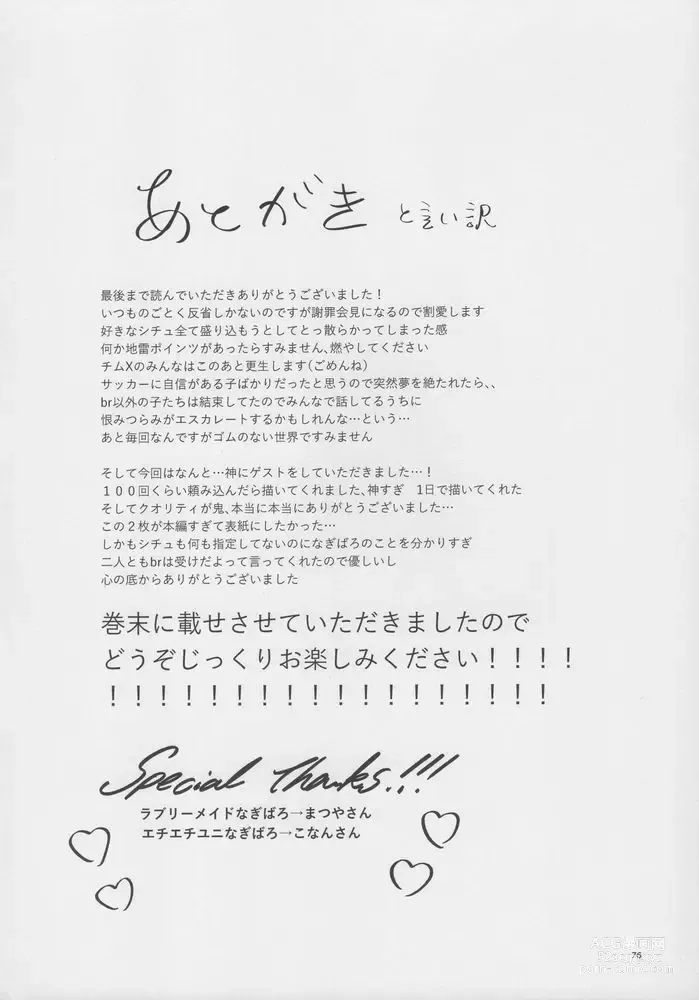 あとがき と言い訳
最後まで読んでいただきありがとうございました！
いつものごとく反省しかないのですが謝罪会見になるので割愛します
好きなシチュ全て盛り込もうとしてとっ散らかってしまった感
何か地雷ポインツがあったらすみません、燃やしてください
チムXのみんなはこのあと更生します(ごめんね)
サッカーに自信がある子ばかりだったと思うので突然夢を絶たれたら、、
br以外の子たちは結束してたのでみんなで話してるうちに
恨みつらみがエスカレートするかもしれんな…という…
あと毎回なんですがゴムのない世界ですみません
そして今回はなんと…神にゲストをしていただきました…！
１００回くらい頼み込んだら描いてくれました、神すぎ　１日で描いてくれた
そしてクオリティが鬼、本当に本当にありがとうございました…
この２枚が本編すぎて表紙にしたかった…
しかもシチュも何も指定してないのになぎばろのことを分かりすぎ
二人ともbrは受けだよって言ってくれたので優しいし
心の底からありがとうございました
巻末に載せさせていただきましたので
どうぞじっくりお楽しみください！！！！
！！！！！！！！！！！！！！！！！！
Special Thanks!!!
ラブリーメイドなぎばろ→まつやさん
エチエチユニなぎばろ→こなんさん
76